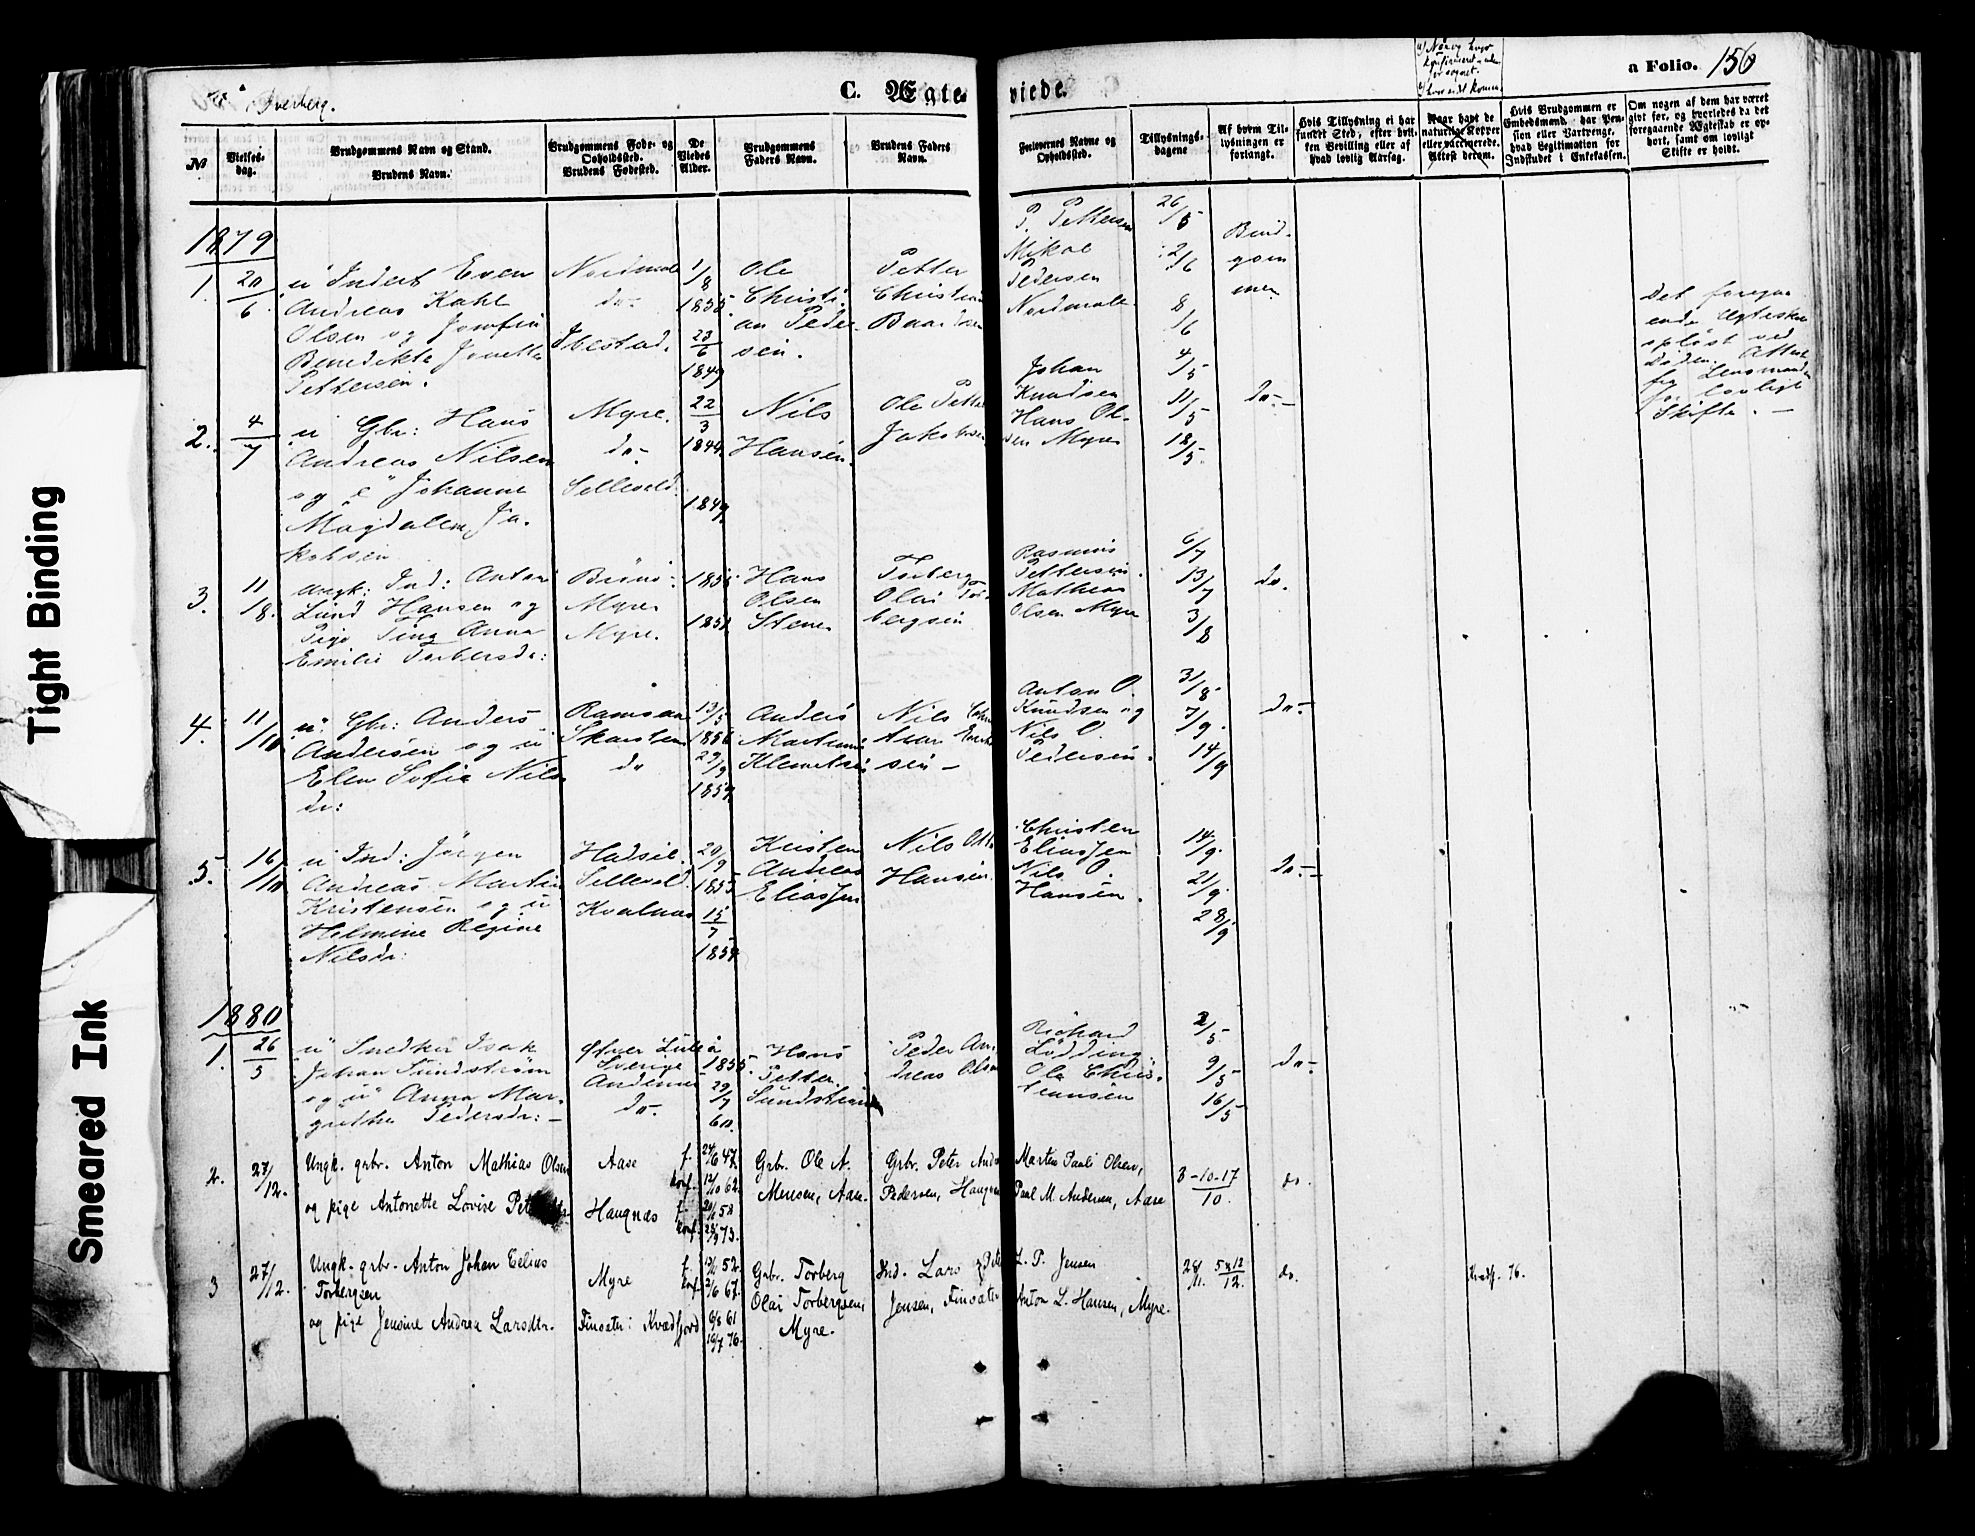 Tight Binding
Smeared Ink
Dverberg.
C. Ægte
viede.
a Folio. 156
No
Vielses-
dag.
Brudgommens Navn og Stand.
Brudens Navn.
Brudgommens Føde- og
Opholdssted.
Brudens Fødested.
De
Viedes
Alder.
Brudgommens
Faders Navn.
Brudens Faders
Navn.
Forlovernes Navne og
Opholdssted.
Tillysnings-
dagene
Af hvem Til-
lysningen er
forlangt.
Hvis Tillysning ei har
fundet Sted, efter hvil-
ken Bevilling eller af
hvad lovlig Aarsag.
Naar havt de
naturlige Kopper
eller vaccinerede.
Attest derom.
Hvis Brudgommen er
Embedsmand: har Pen-
sion eller Vartpenge,
hvad Legitimation for
Indskudet i Enkekassen.
Om nogen af dem har været
gift før, og hvorledes da det
foregaaende Ægteskab er op-
hørt, samt om lovligt
Skifte er holdt.
1879
1. 20/6
Inderst Even
Andreas Kahl
Olsen og Josefin
Benedikte Jonette
Pettersen.
Nordmele
do-
Ibestad.
1/8
1855.
23/6
1849
Ole
Christi-
an Peder-
sen.
Petter
Christian
Baardsen
P. Pettersen
Mikal
Pedersen
Nordmele
26/5
2/6
8/6
Brud-
gom
men
Det foregaa
ende Ægteska
opløst ved
Døden. Attest
fra Lensmanden
for lovligt
Skifte. —
2. 4/7
Gbr: Hans
Andreas Nilsen
og Johanne
Magdalene Ja-
kobsen
Myre.
do-
Sellevold.
22/3
1844
1849.
Nils
Hansen.
Ole Petter
Jakobsen
Johan
Knudsen
Hans Ol-
sen Myre
4/5
11/5
18/5.
do.—
3. 11/8.
Ungk: Ind: Anton
Lund Hansen og
Pige Ting Anna
Emilie Torbersdr:
Myre
Myre.
Hans
Olsen
Stene
Torberg
Olai Tor
bergsen
Rasmus
Pettersen.
Mathias
Olsen Myre
6/7
13/7
3/8
do.
4. 11/10
Gbr: Anders
Andersen og
Elen Sofie Nils
dr:
Ramsaa
Skarsten
do
13/5
1856
29/9
1859.
Anders
Martinus
Klemetsen
Nils
sen —
Anton O.
Knudsen og
Nils O.
Pedersen.
31/8
7/9.
14/9
do.—
5. 16/10
Ind: Jørgen
Andreas Martin
Kristensen og
Helmine Regine
Nilsdr:
Hadsel.
Sellevold
Kvalnæs
20/9
1855
15/7
Kristen
Andreas
Eliassen
Nils Otto
Hansen.
Christen
Eliassen
Nils O.
Hansen.
14/9.
21/9.
28/9
do.—
1880
1. 26/5
Snedker Isak
Johan Sundstrøm
og Anna Mar-
grethe Pedersdr: —
Øfver Luleå
Sverige
Andenes
do.
1855.
29/7
60.
Hans
Petter
Sundstrøm
Peder An-
dreas Olsen
Richard
Lødding.
Ole Chris-
tiansen
2/5.
9/5
16/5
do.—
2. 27/12.
Ungk. grbr. Anton Mathias Olsen
og pige Antonette Lovise
Aase
Haugnæs
f. 24/6 47.
konf. 12/10 62.
f.
konf. 73.
Grbr. Ole A.
Mensen, Aase.
Grbr. Peter Andr
Pedersen, Haugnæs
Morten Pauli Olsen,
Paul M. Andersen, Aase
3-10-17/10.
do.
3 27/12.
Ungk. grbr. Anton Johan Celius
Torbergsen
og pige Jensine Andrea Larsdtr.
Myre
Finsæter: Kvædfjord
f. 52.
konf. 67.
6/8 61
16/7 76.
Grbr. Torberg
Olai Torbergsen,
Myre.
Ind. Lars Peter
Jensen, Finsæter
L. P. Jensen
Anton L. Hansen, Myre.
28/11. 5 & 12/12.
do.
Kvædfj. 76.